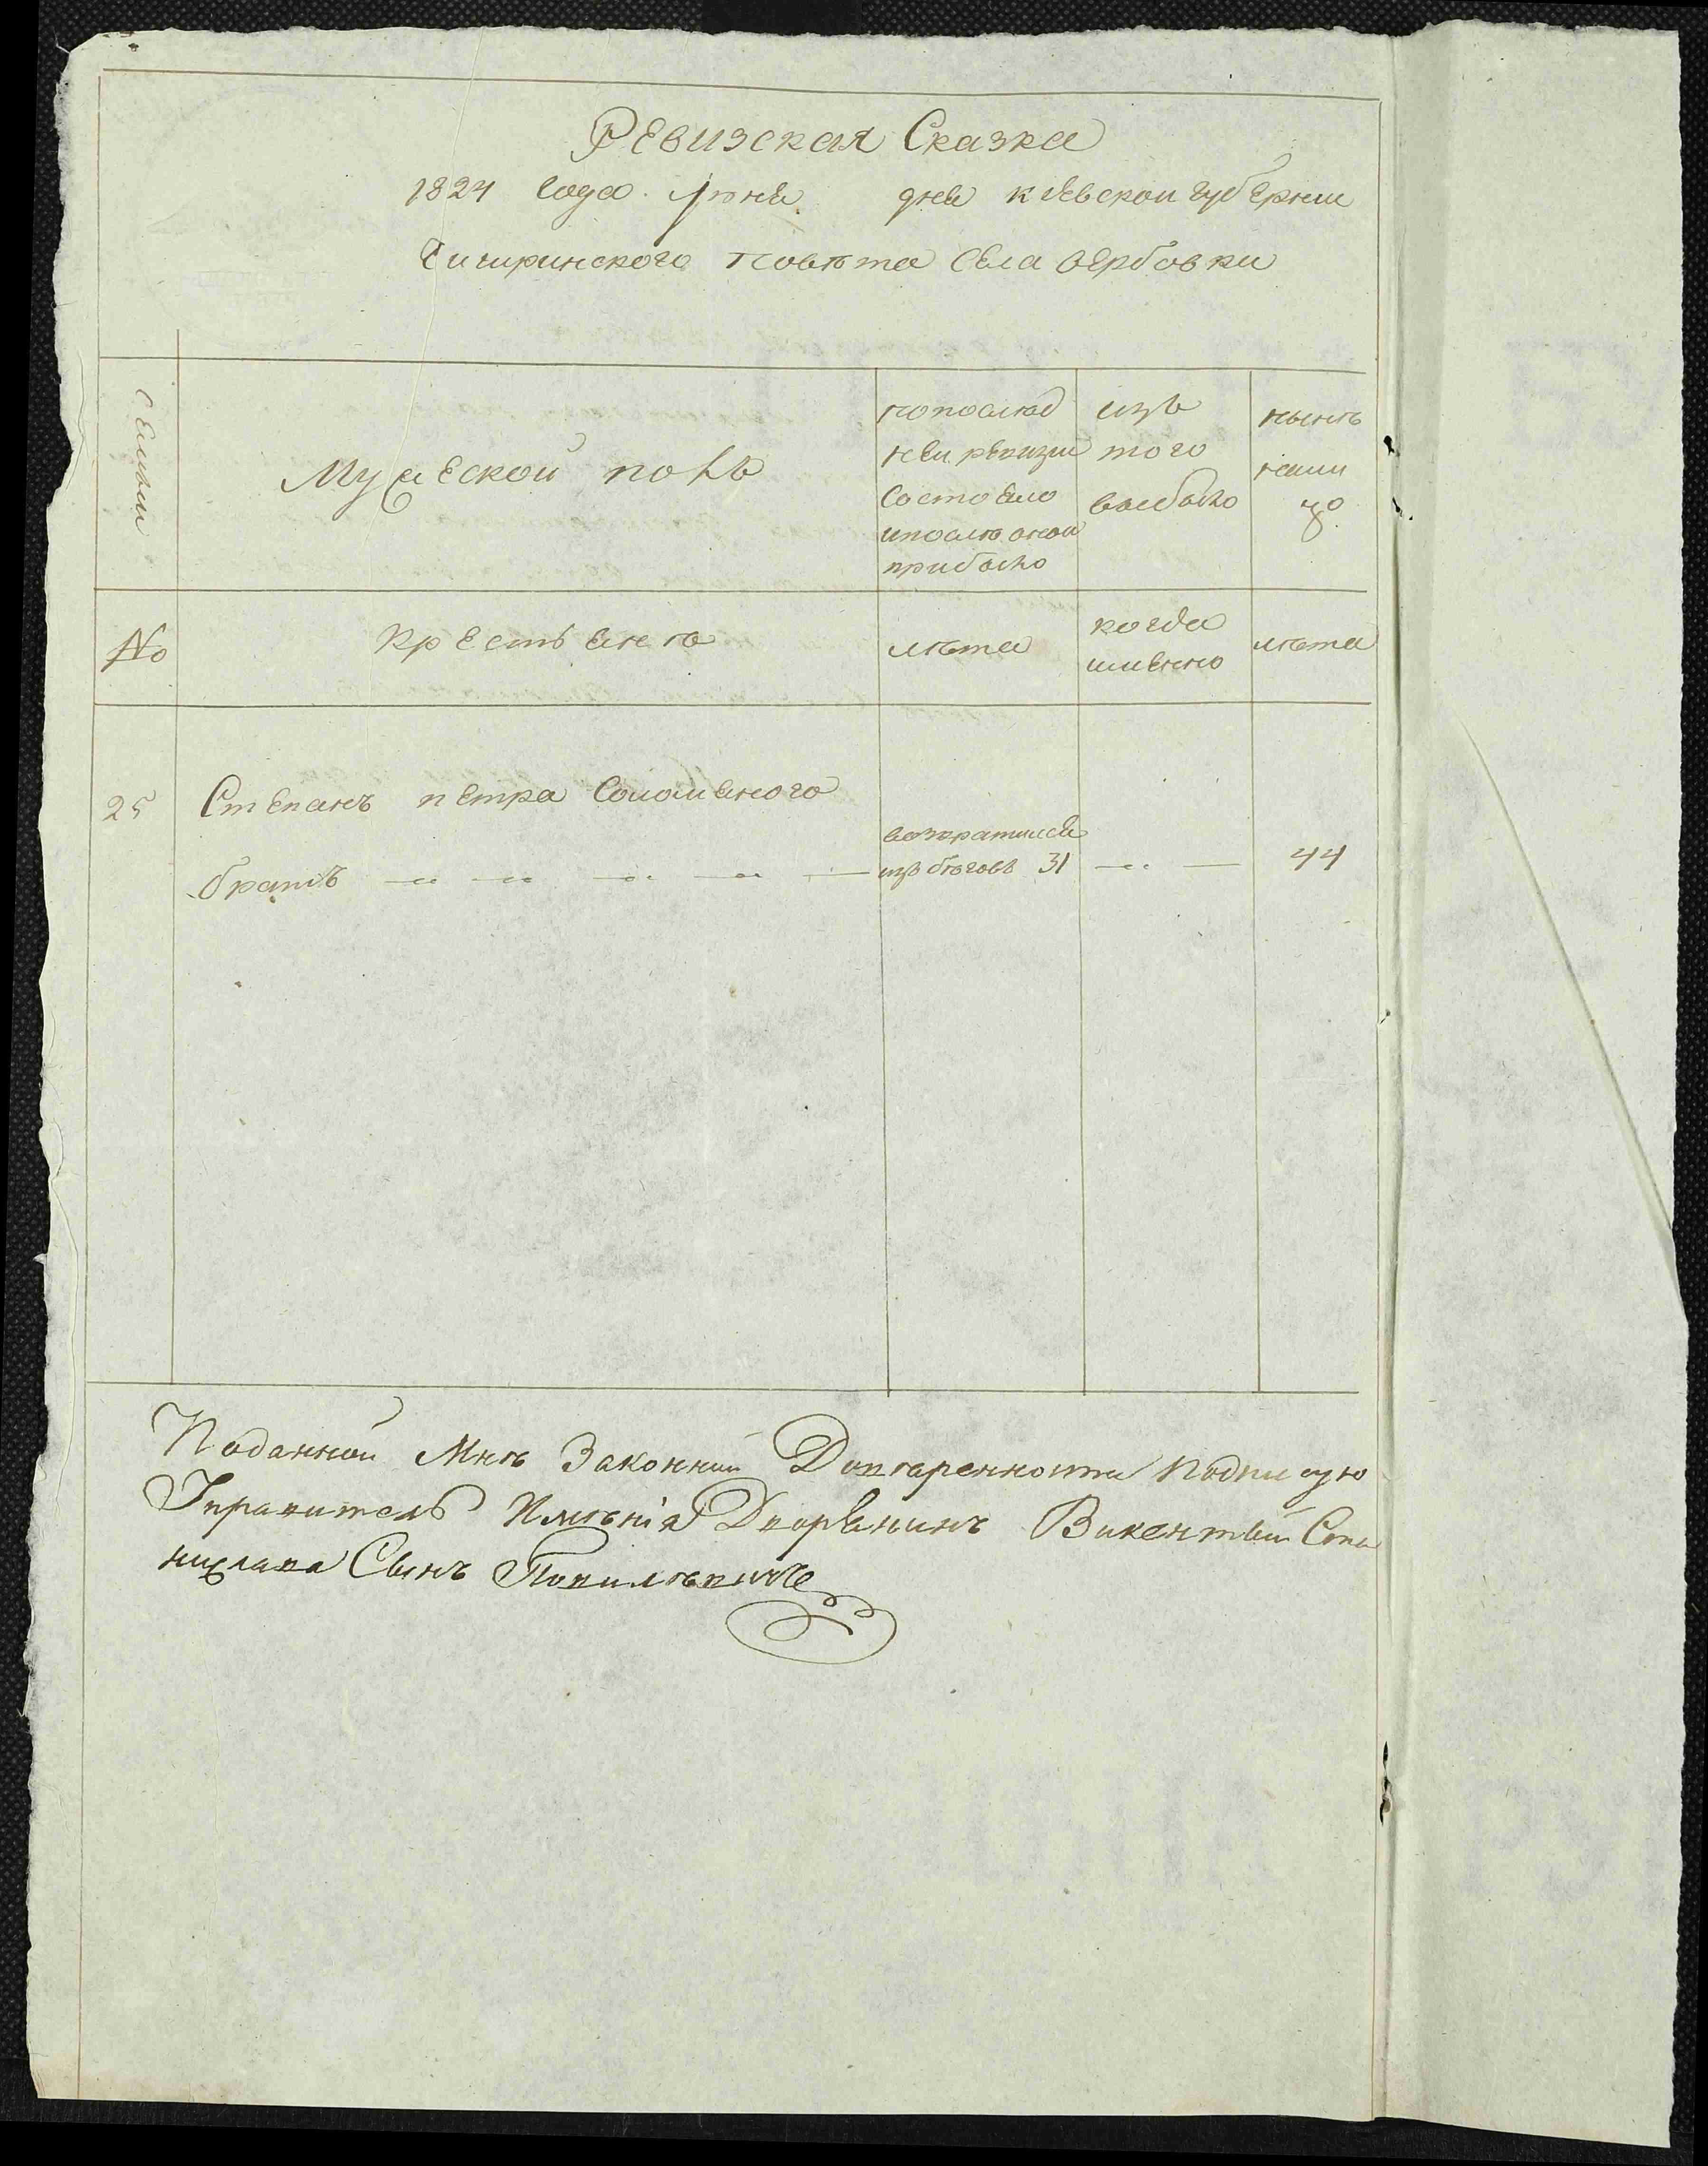 Ревизская Сказка
1824 года Июня дня Киевской губернии
Чигиринского повѣта села вербовки
Семьи
Мужеской полъ
по послѣд
ней ревизии
состояло
и послѣ оной
прибыло
изъ
того
выбыло
нынѣ
на ли
цо
№
Крестьянъ
лѣта
когда
имянно
лѣта
25
Степанъ петра Соломяного
братъ
возвратился
изъ бѣговъ 31
44
По данной Мнѣ Законній Довѣренности Подписую
Управитель Имѣнія Дворянинъ Викентый Ста
нислава Сынъ